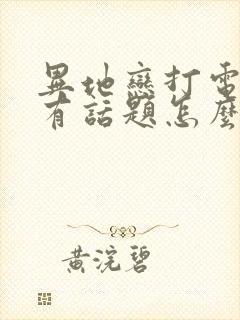 異地戀打電
有話題怎麼
黃浣碧